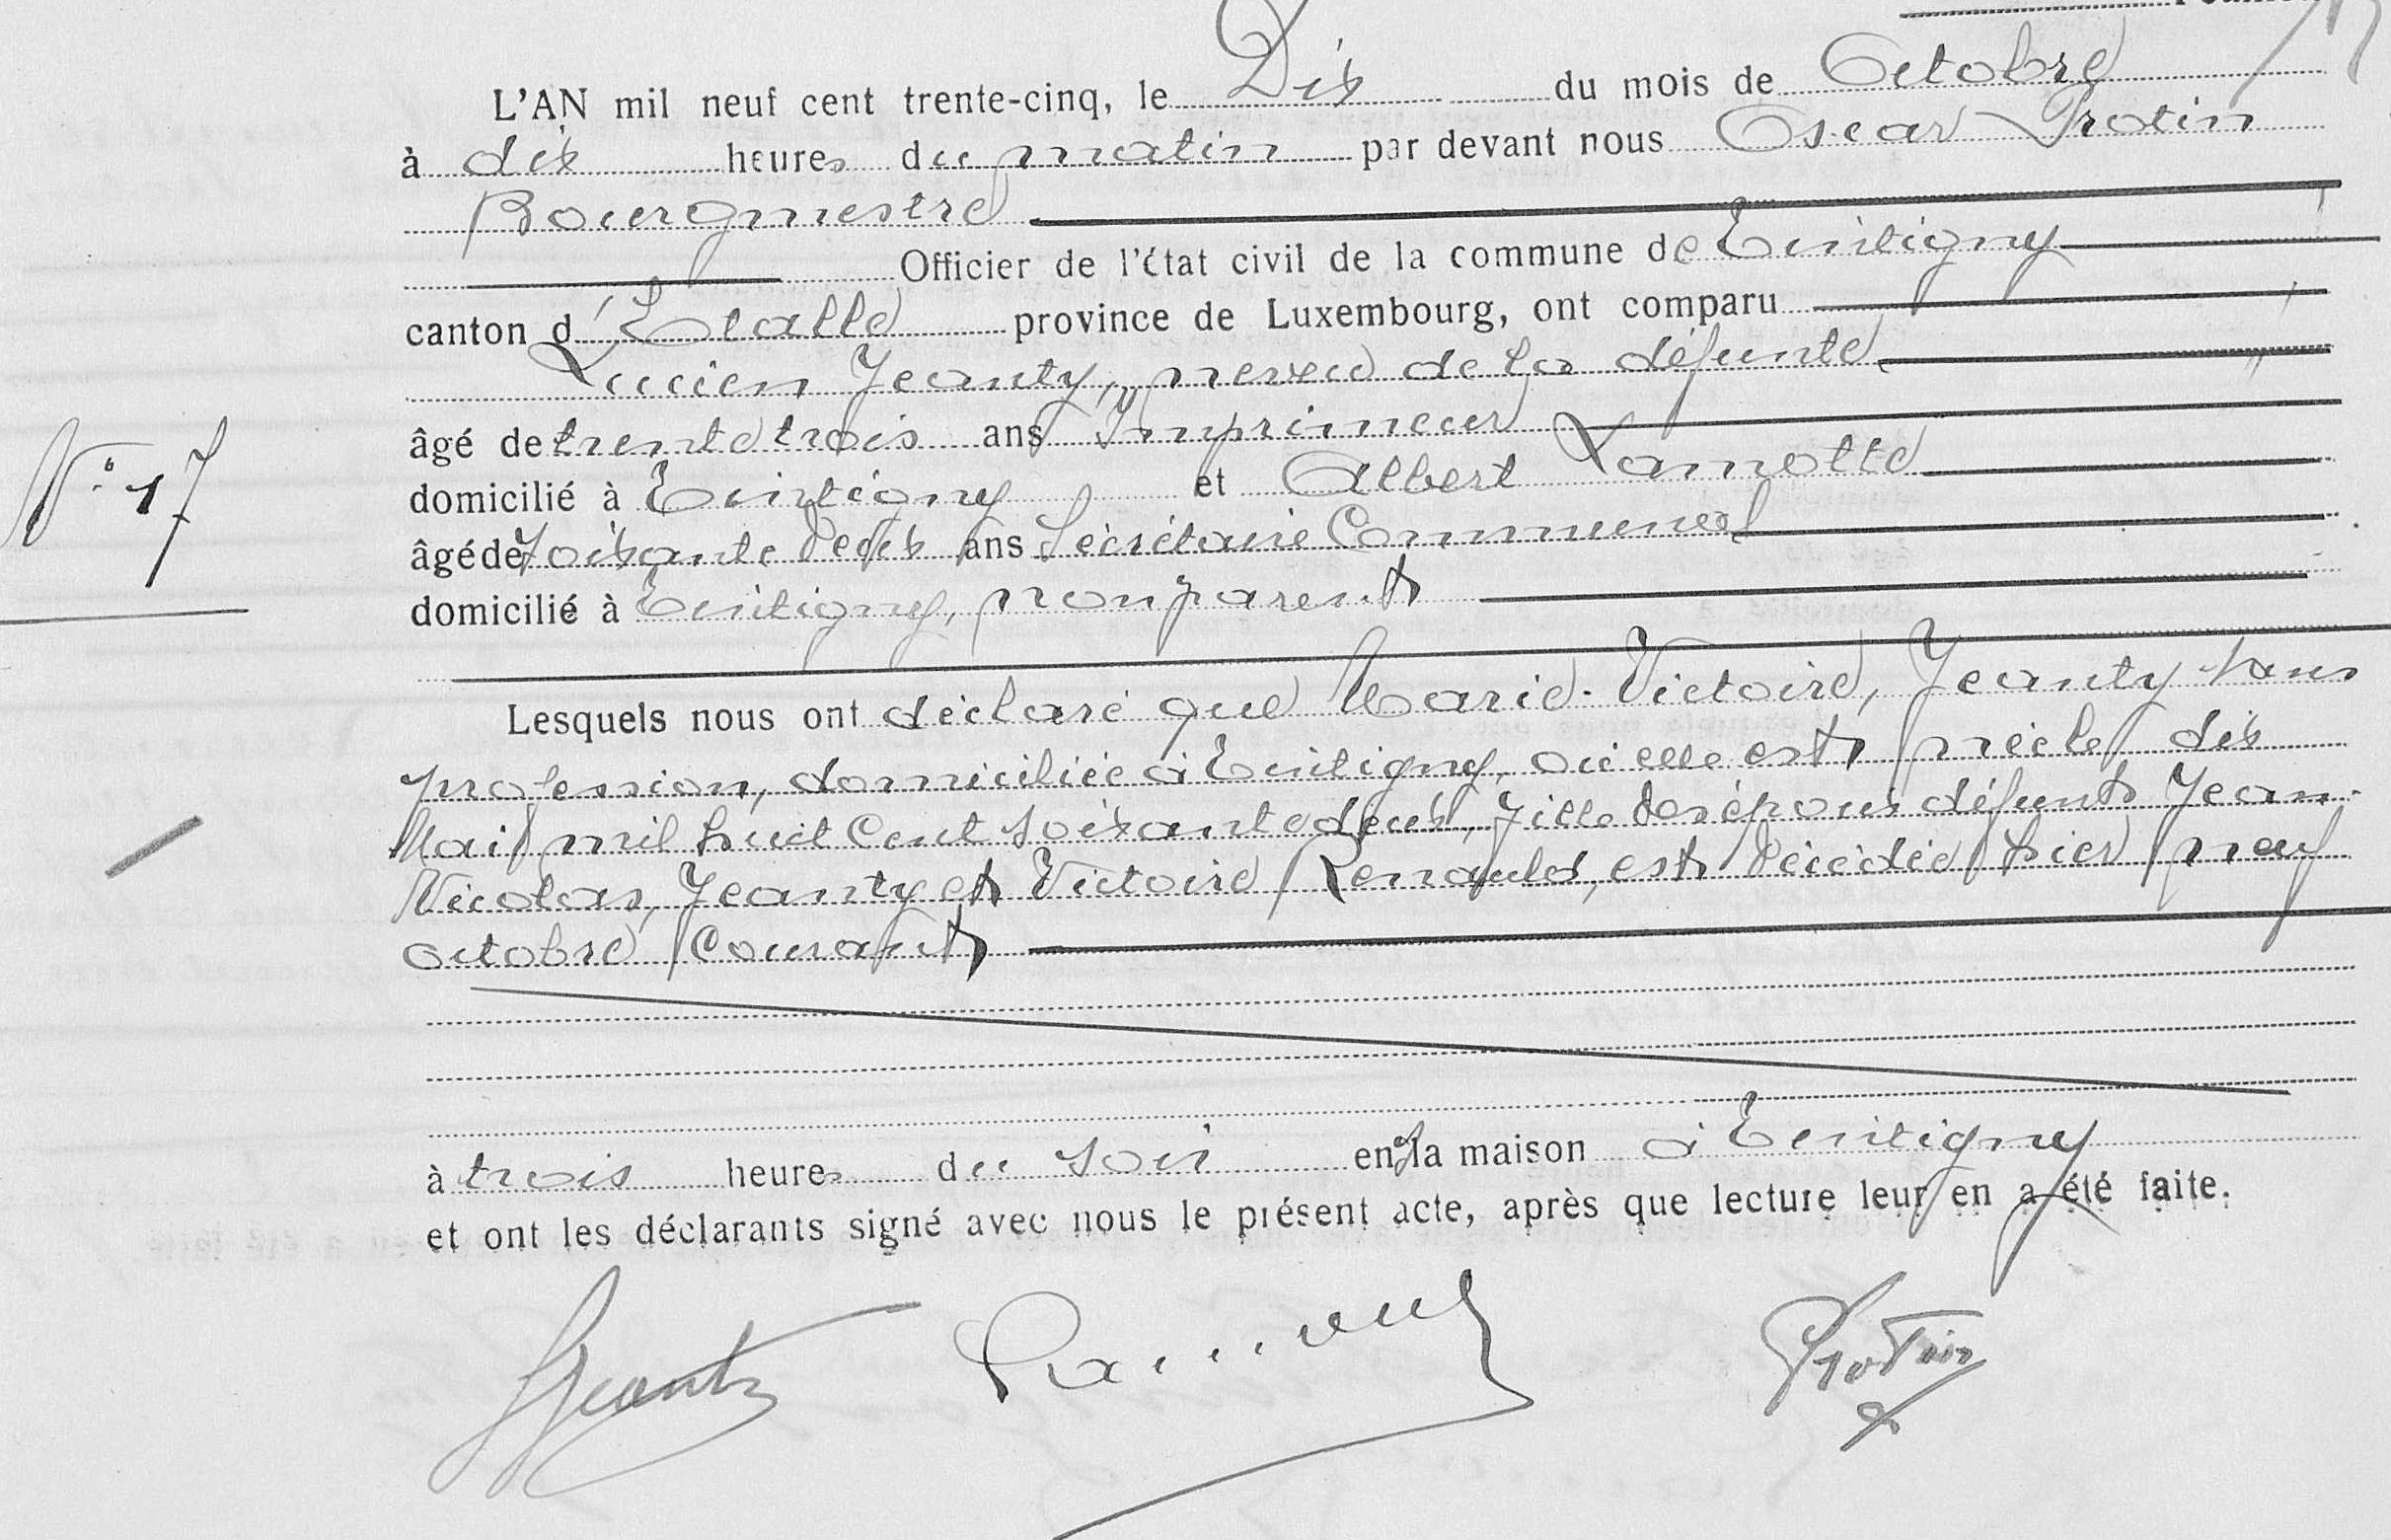 L'AN mil neuf cent trente-cinq, le Dix du mois de Octobre
à dix heures du matin par devant nous Oscar Protin
Bourgmestre
Officier de l'état civil de la commune de Tintigny
canton d'Etalle province de Luxembourg, ont comparu
Lucien Jeanty, neveu de la défunte
âgé de trente trois ans Imprimeur
domicilié à Tintigny et Albert Lamotte
N° 17
âgé de soixante deux ans Secrétaire Communal
domicilié à Tintigny, non parent
Lesquels nous ont déclaré que Marie-Victoire, Jeanty sans
profession, domiciliée à Tintigny, où elle est née le dix
Mai mil huit cent soixante deux, fille des époux défunts Jean-
Nicolas, Jeanty et Victoire Renauld, est décédée hier neuf
octobre courant
à trois heures du soir en sa maison à Tintigny
et ont les déclarants signé avec nous le présent acte, après que lecture leur en a été faite.
Jeanty Protin